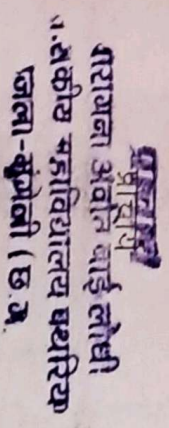 प्राचार्य
अवंती बाई लोधी
महाविद्यालय पथरिया
जिला-मुंगेली (छ.ग.